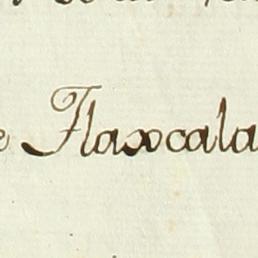 e Tlaxcala